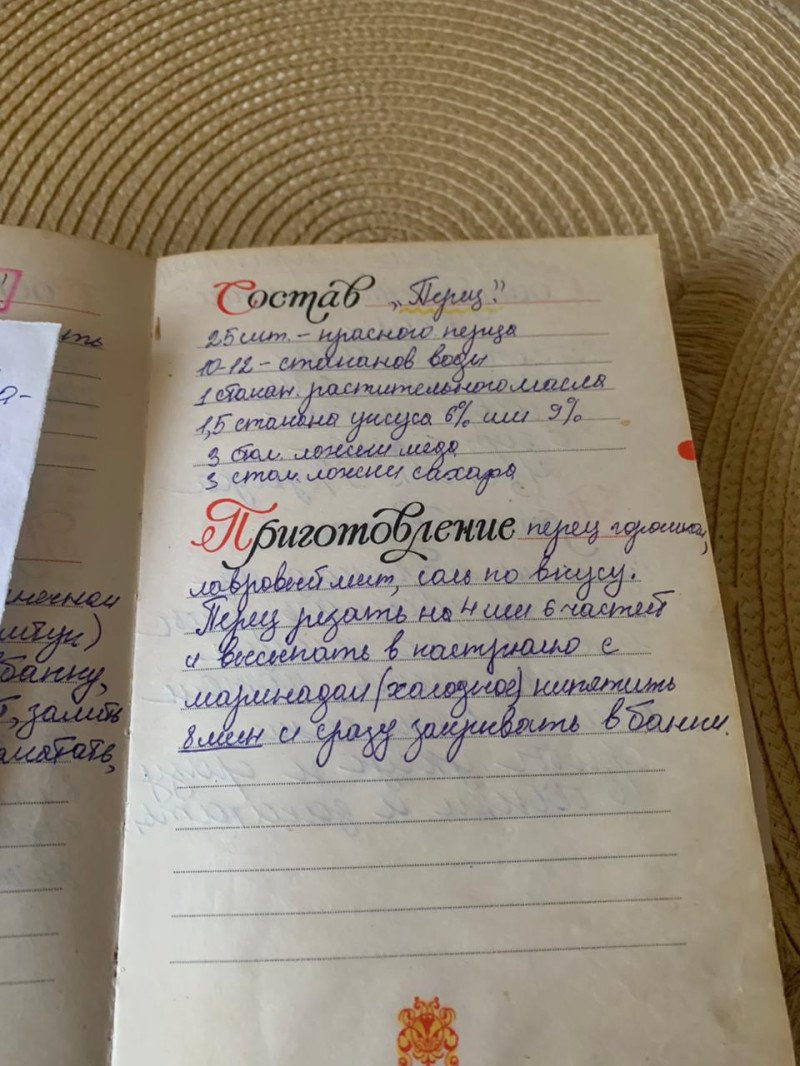 Состав „Перец"
25 шт. – красного перца
10-12 – стаканов воды
1 стакан. растительного масла
1,5 стакана уксуса 6% или 9%
3 стол. ложки меда
3 стол. ложки сахара
Приготовление перец горошком,
лавровый лист, соль по вкусу.
Перец резать на 4 или 6 частей
и высыпать в кастрюлю с
маринадом (холодное) кипятить
8 мин и сразу закрывать в банки.
штук)
банку,
залить